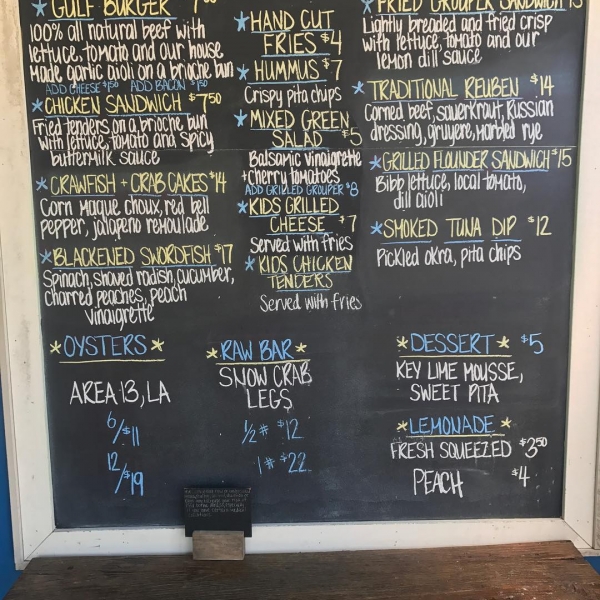 * GULF BURGER
100% all natural beef with
lettuce, tomato and our house
made garlic aioli on a brioche bun
ADD CHEESE $1.50 ADD BACON $1.50
* CHICKEN SANDWICH $7.50
Fried tenders on a brioche bun
with lettuce, tomato and spicy
buttermilk sauce
* CRAWFISH + CRAB CAKES $14
Corn Maque choux, red bell
pepper, jalapeno remoulade
* BLACKENED SWORDFISH $17
Spinach, shaved radish, cucumber,
charred peaches, peach
vinaigrette
* HAND CUT
FRIES $4
* HUMMUS $7
Crispy pita chips
* MIXED GREEN
SALAD $5
Balsamic vinaigrette
+ cherry tomatoes
ADD GRILLED GROUPER $8
* KIDS GRILLED
CHEESE $7
Served with fries
* KIDS CHICKEN
TENDERS
Served with fries
* FRIED GROUPER SANDWICH
Lightly breaded and fried crisp
with lettuce, tomato and our
lemon dill sauce
* TRADITIONAL REUBEN $14
Corned beef, sauerkraut, Russian
dressing, gruyere, marbled rye
* GRILLED FLOUNDER SANDWICH $15
Bibb lettuce, local tomato,
dill aioli
* SMOKED TUNA DIP $12
Pickled okra, pita chips
* OYSTERS *
AREA 13, LA
6/$11
12/$19
* RAW BAR *
SNOW CRAB
LEGS
1/2 # $12
1 # $22
* DESSERT * $5
KEY LIME MOUSSE,
SWEET PITA
* LEMONADE *
FRESH SQUEEZED $3.50
PEACH $4